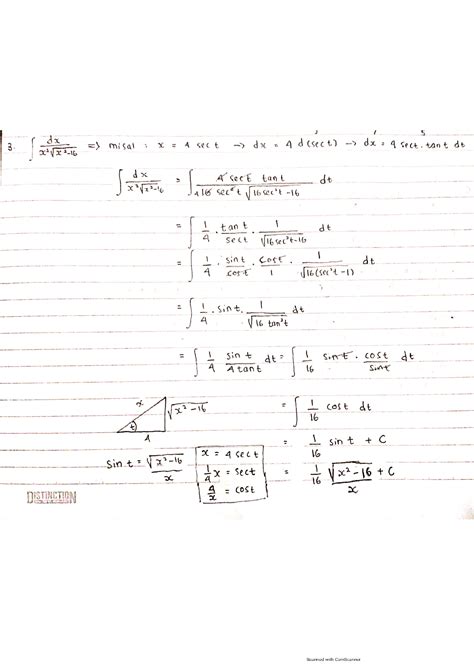 3. ∫ dx / x²√x²-16 => misal : x = 4 sec t → dx = 4 d(sec t) → dx = 4 sect. tant dt
∫ dx / x²√x²-16 = ∫ 4 sec t tan t / 4 16 sec² t √16 sec² t - 16 dt
= ∫ 1/4 . tan t / sec t . 1 / √16 sec² t - 16 dt
= ∫ 1/4 . sin t / cos t . cos t / 1 . 1 / √16 (sec² t - 1) dt
= ∫ 1/4 . sin t . 1 / √16 tan² t dt
= ∫ 1/4 sin t / 4 tan t dt = ∫ 1/16 sin t . cos t / sin t dt
x √x²-16 = ∫ 1/16 cos t dt
t
4 = 1/16 sin t + C
sin t = √x²-16 / x x = 4 sec t = 1/16 √x²-16 / x + C
1/4 x = sec t
4/x = cos t
DISTINCTION
Scanned with CamScanner